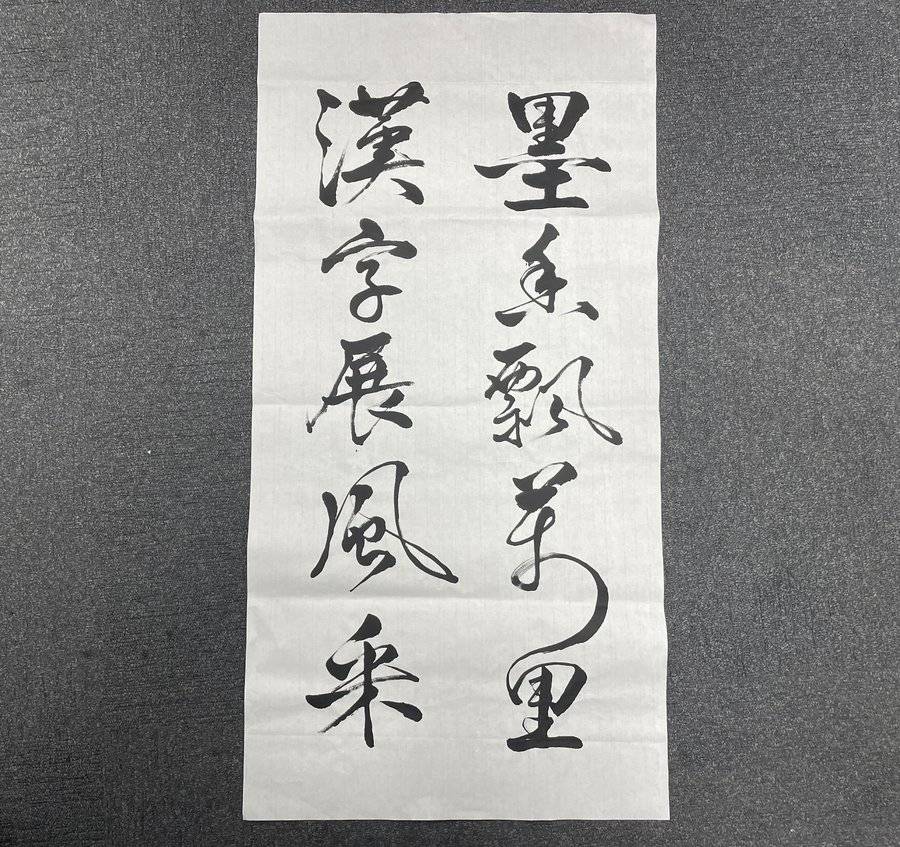 墨香飄萬里
漢字展風采